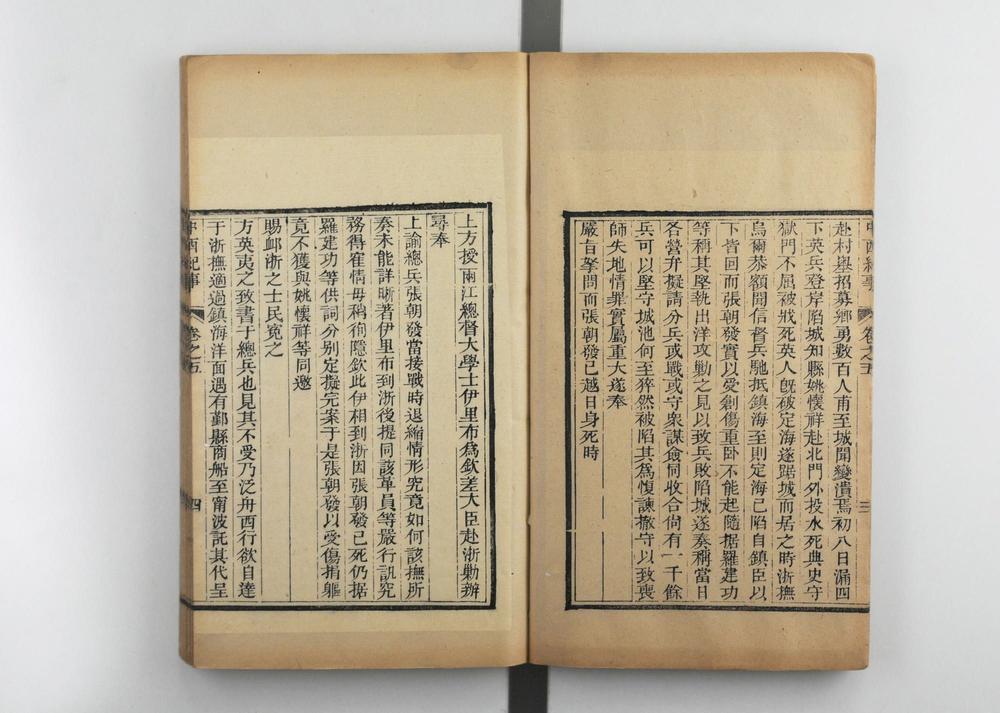 中西紀事
卷之五
三
赴村舉招募鄉勇數百人甫至城聞變潰焉初八日漏四
下英兵登岸陷城知縣姚懷祥赴北門外投水死典史守
獄門不屈被戕死英人旣破定海遂踞城而居之時浙撫
烏爾恭額聞信督兵馳抵鎮海至則定海已陷自鎮臣以
下皆回而張朝發實以受創傷重卧不能起隨据羅建功
等稱其堅執出洋攻勦之見以致兵敗陷城遂奏稱當日
各營弁擬請分兵或戰或守衆謀僉同收合尙有一千餘
兵可以堅守城池何至猝然被陷其爲愎諫撤守以致喪
師失地情罪實屬重大遂奉
嚴旨拏問而張朝發已越日身死時
上方授兩江總督大學士伊里布爲欽差大臣赴浙勦辦
尋奉
上諭總兵張朝發當接戰時退縮情形究竟如何該撫所
奏未能詳晰著伊里布到浙後提同該革員等嚴行訊究
務得寉情毋稍徇隱欽此伊相到浙因張朝發已死仍据
羅建功等供詞分别定擬完案于是張朝發以受傷捐軀
竟不獲與姚懷祥等同邀
賜卹浙之士民寃之
方英夷之致書于總兵也見其不受乃泛舟西行欲自達
于浙撫適過鎮海洋面遇有鄞縣商船至甯波託其代呈
中西紀事
卷之五
四